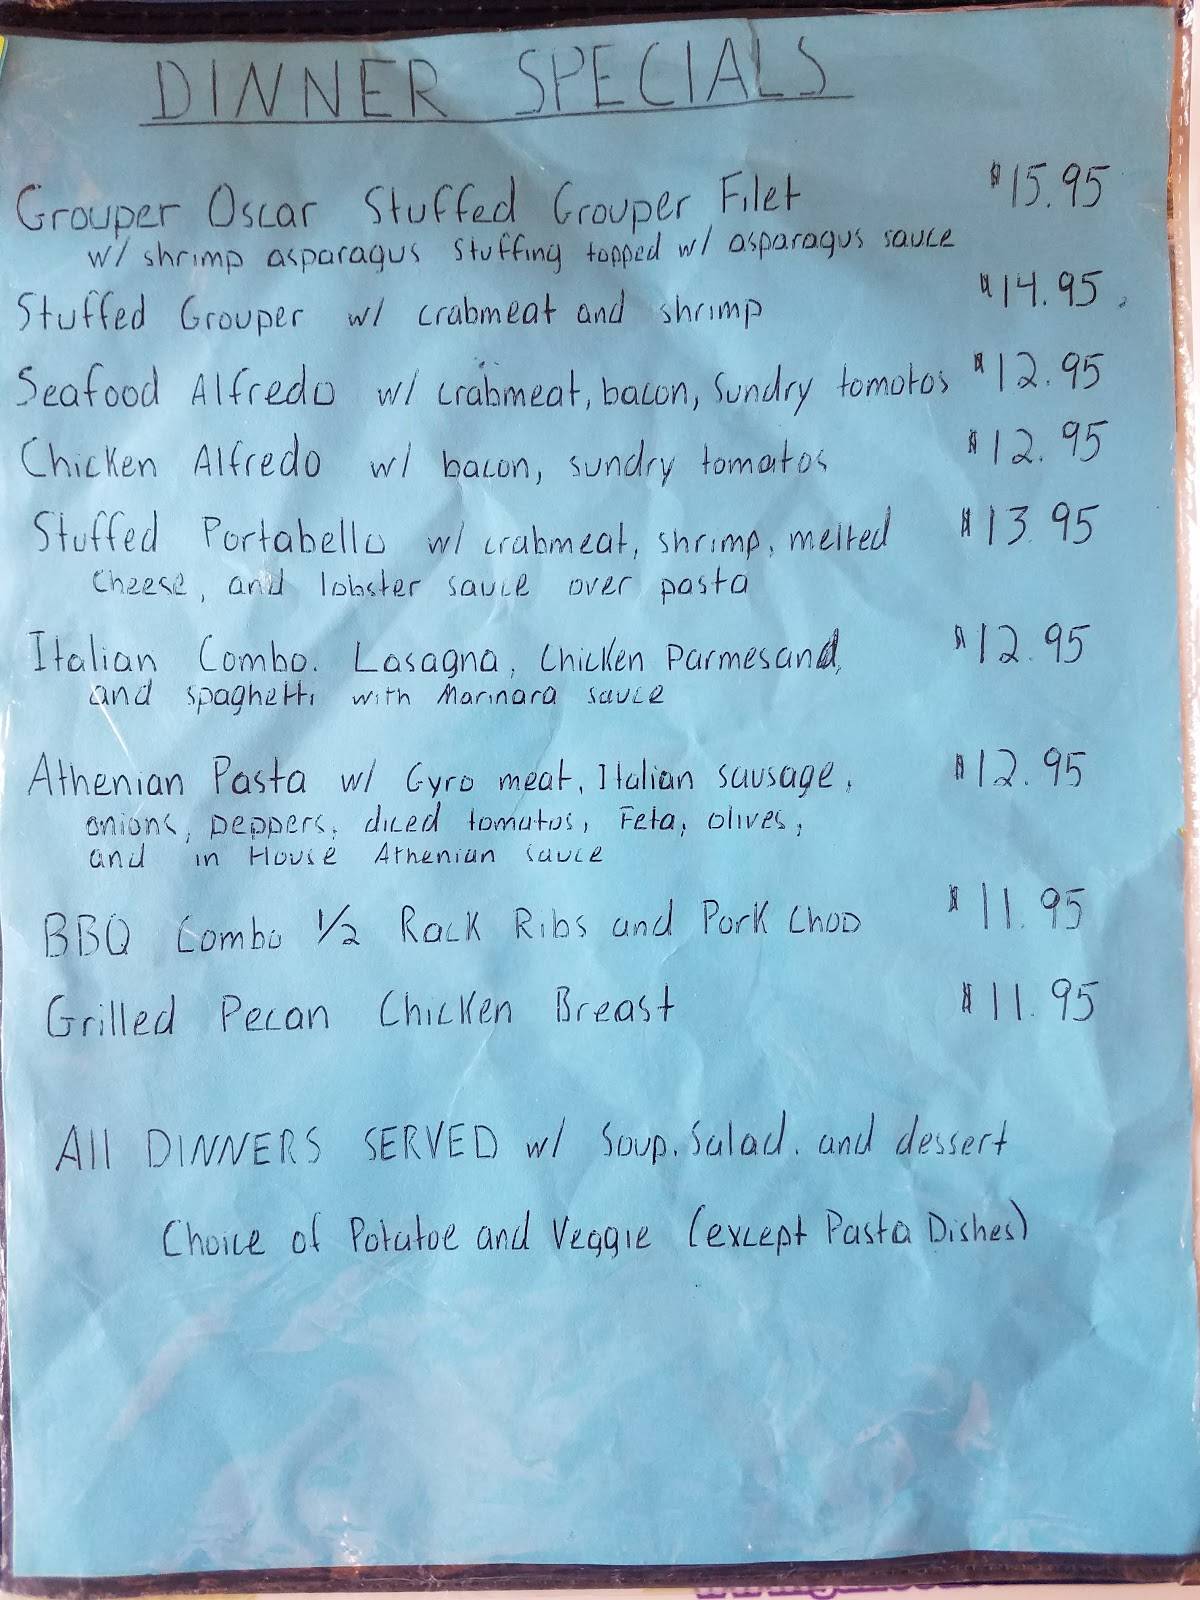 DINNER SPECIALS
Grouper Oscar Stuffed Grouper Filet $15.95
w/ shrimp asparagus stuffing topped w/ asparagus sauce
Stuffed Grouper w/ crabmeat and shrimp $14.95
Seafood Alfredo w/ crabmeat, bacon, sundry tomatos $12.95
Chicken Alfredo w/ bacon, sundry tomatos $12.95
Stuffed Portabello w/ crabmeat, shrimp, melted $13.95
cheese, and lobster sauce over pasta
Italian Combo. Lasagna, Chicken Parmesand, $12.95
and spaghetti with Marinara sauce
Athenian Pasta w/ Gyro meat, Italian sausage, $12.95
onions, peppers, diced tomatos, Feta, olives,
and in House Athenian sauce
BBQ Combo 1/2 Rack Ribs and Pork Chop $11.95
Grilled Pecan Chicken Breast $11.95
All DINNERS SERVED w/ Soup, Salad, and dessert
Choice of Potatoe and Veggie (except Pasta Dishes)